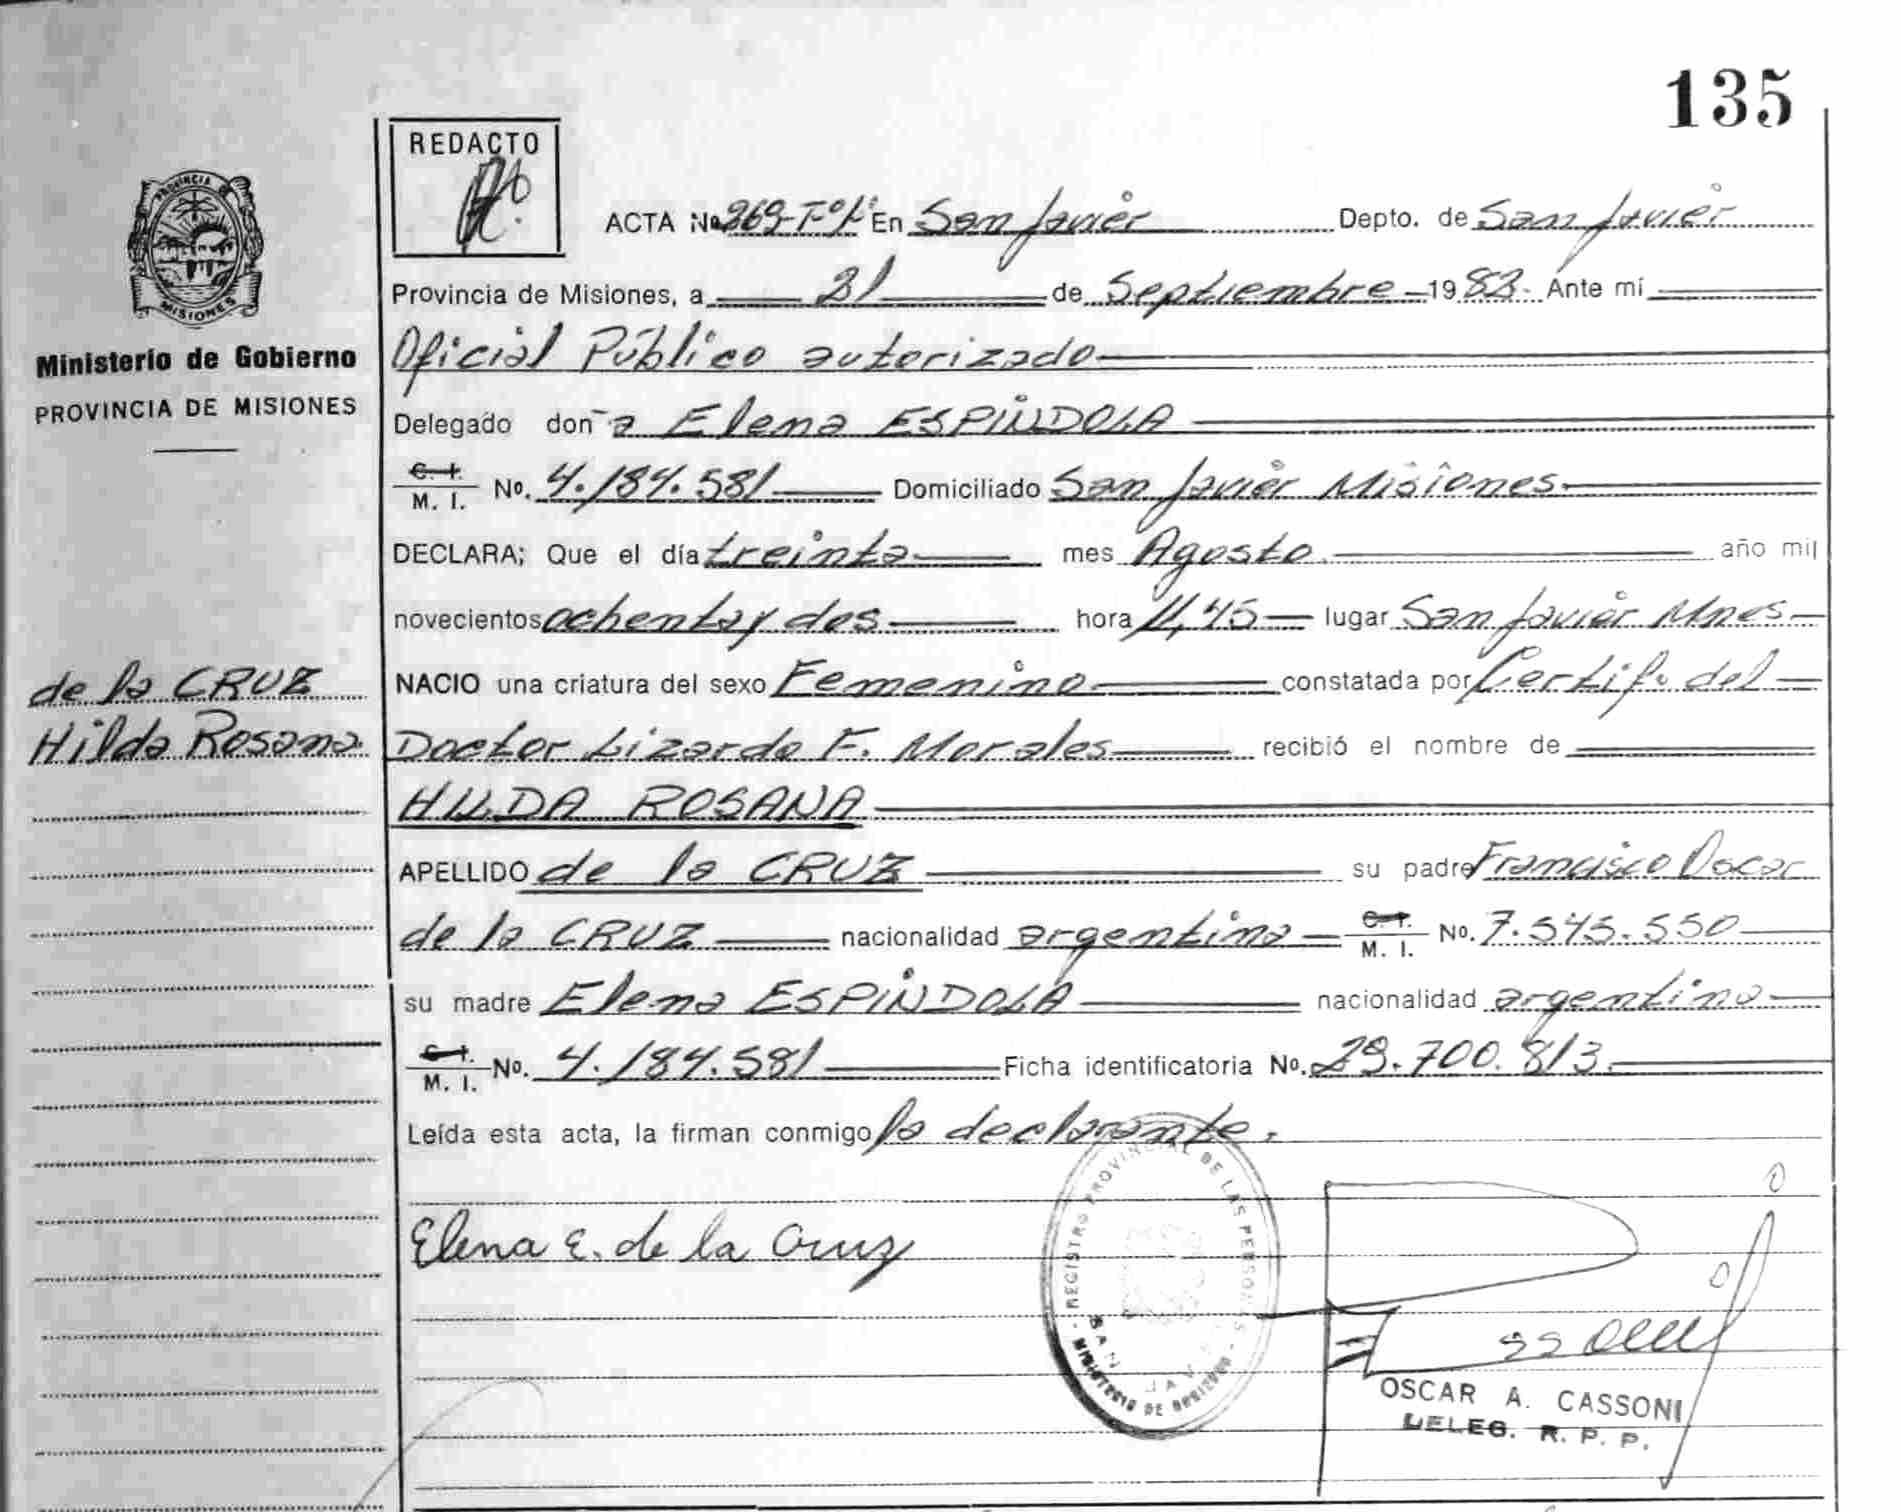 135
REDACTO
ACTA No 269-Tº1º En San Javier Depto. de San Javier
Provincia de Misiones, a 21 de Septiembre 1982. Ante mí
Oficial Público autorizado
Delegado doña Elena ESPINDOLA
C. I. M. I. No. 4.184.581 Domiciliado San Javier Misiones
DECLARA; Que el día treinta mes Agosto año mil
novecientos ochenta y dos hora 11,45 lugar San Javier Mnes
NACIO una criatura del sexo Femenino constatada por Certif. del
Doctor Lizardo F. Morales recibió el nombre de
HILDA ROSANA
APELLIDO de la CRUZ su padre Francisco Oscar
de la CRUZ nacionalidad argentina C. I. M. I. No. 7.545.550
su madre Elena ESPINDOLA nacionalidad argentina
C. I. M. I. No. 4.184.581 Ficha identificatoria No. 29.700.813
Leída esta acta, la firman conmigo la declarante.
Elena E. de la Cruz
PROVINCIA DE MISIONES
Ministerio de Gobierno
PROVINCIA DE MISIONES
de la CRUZ
Hilda Rosana
REGISTRO PROVINCIAL DE LAS PERSONAS
SAN JAVIER
MINISTERIO DE GOBIERNO
OSCAR A. CASSONI
DELEG. R. P. P.